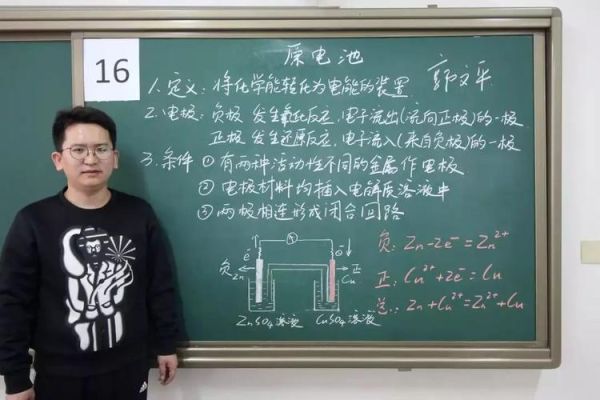 16
原电池
郭文平
1. 定义：将化学能转化为电能的装置
2. 电极：负极 发生氧化反应，电子流出(流向正极)的一极
正极 发生还原反应，电子流入(来自负极)的一极
3. 条件 ① 有两种活动性不同的金属作电极
② 电极材料均插入电解质溶液中
③ 两极相连形成闭合回路
e⁻ e⁻
负 正
Zn Cu
ZnSO₄溶液 CuSO₄溶液
负: Zn-2e⁻=Zn²⁺
正: Cu²⁺+2e⁻=Cu
总: Zn+Cu²⁺=Zn²⁺+Cu